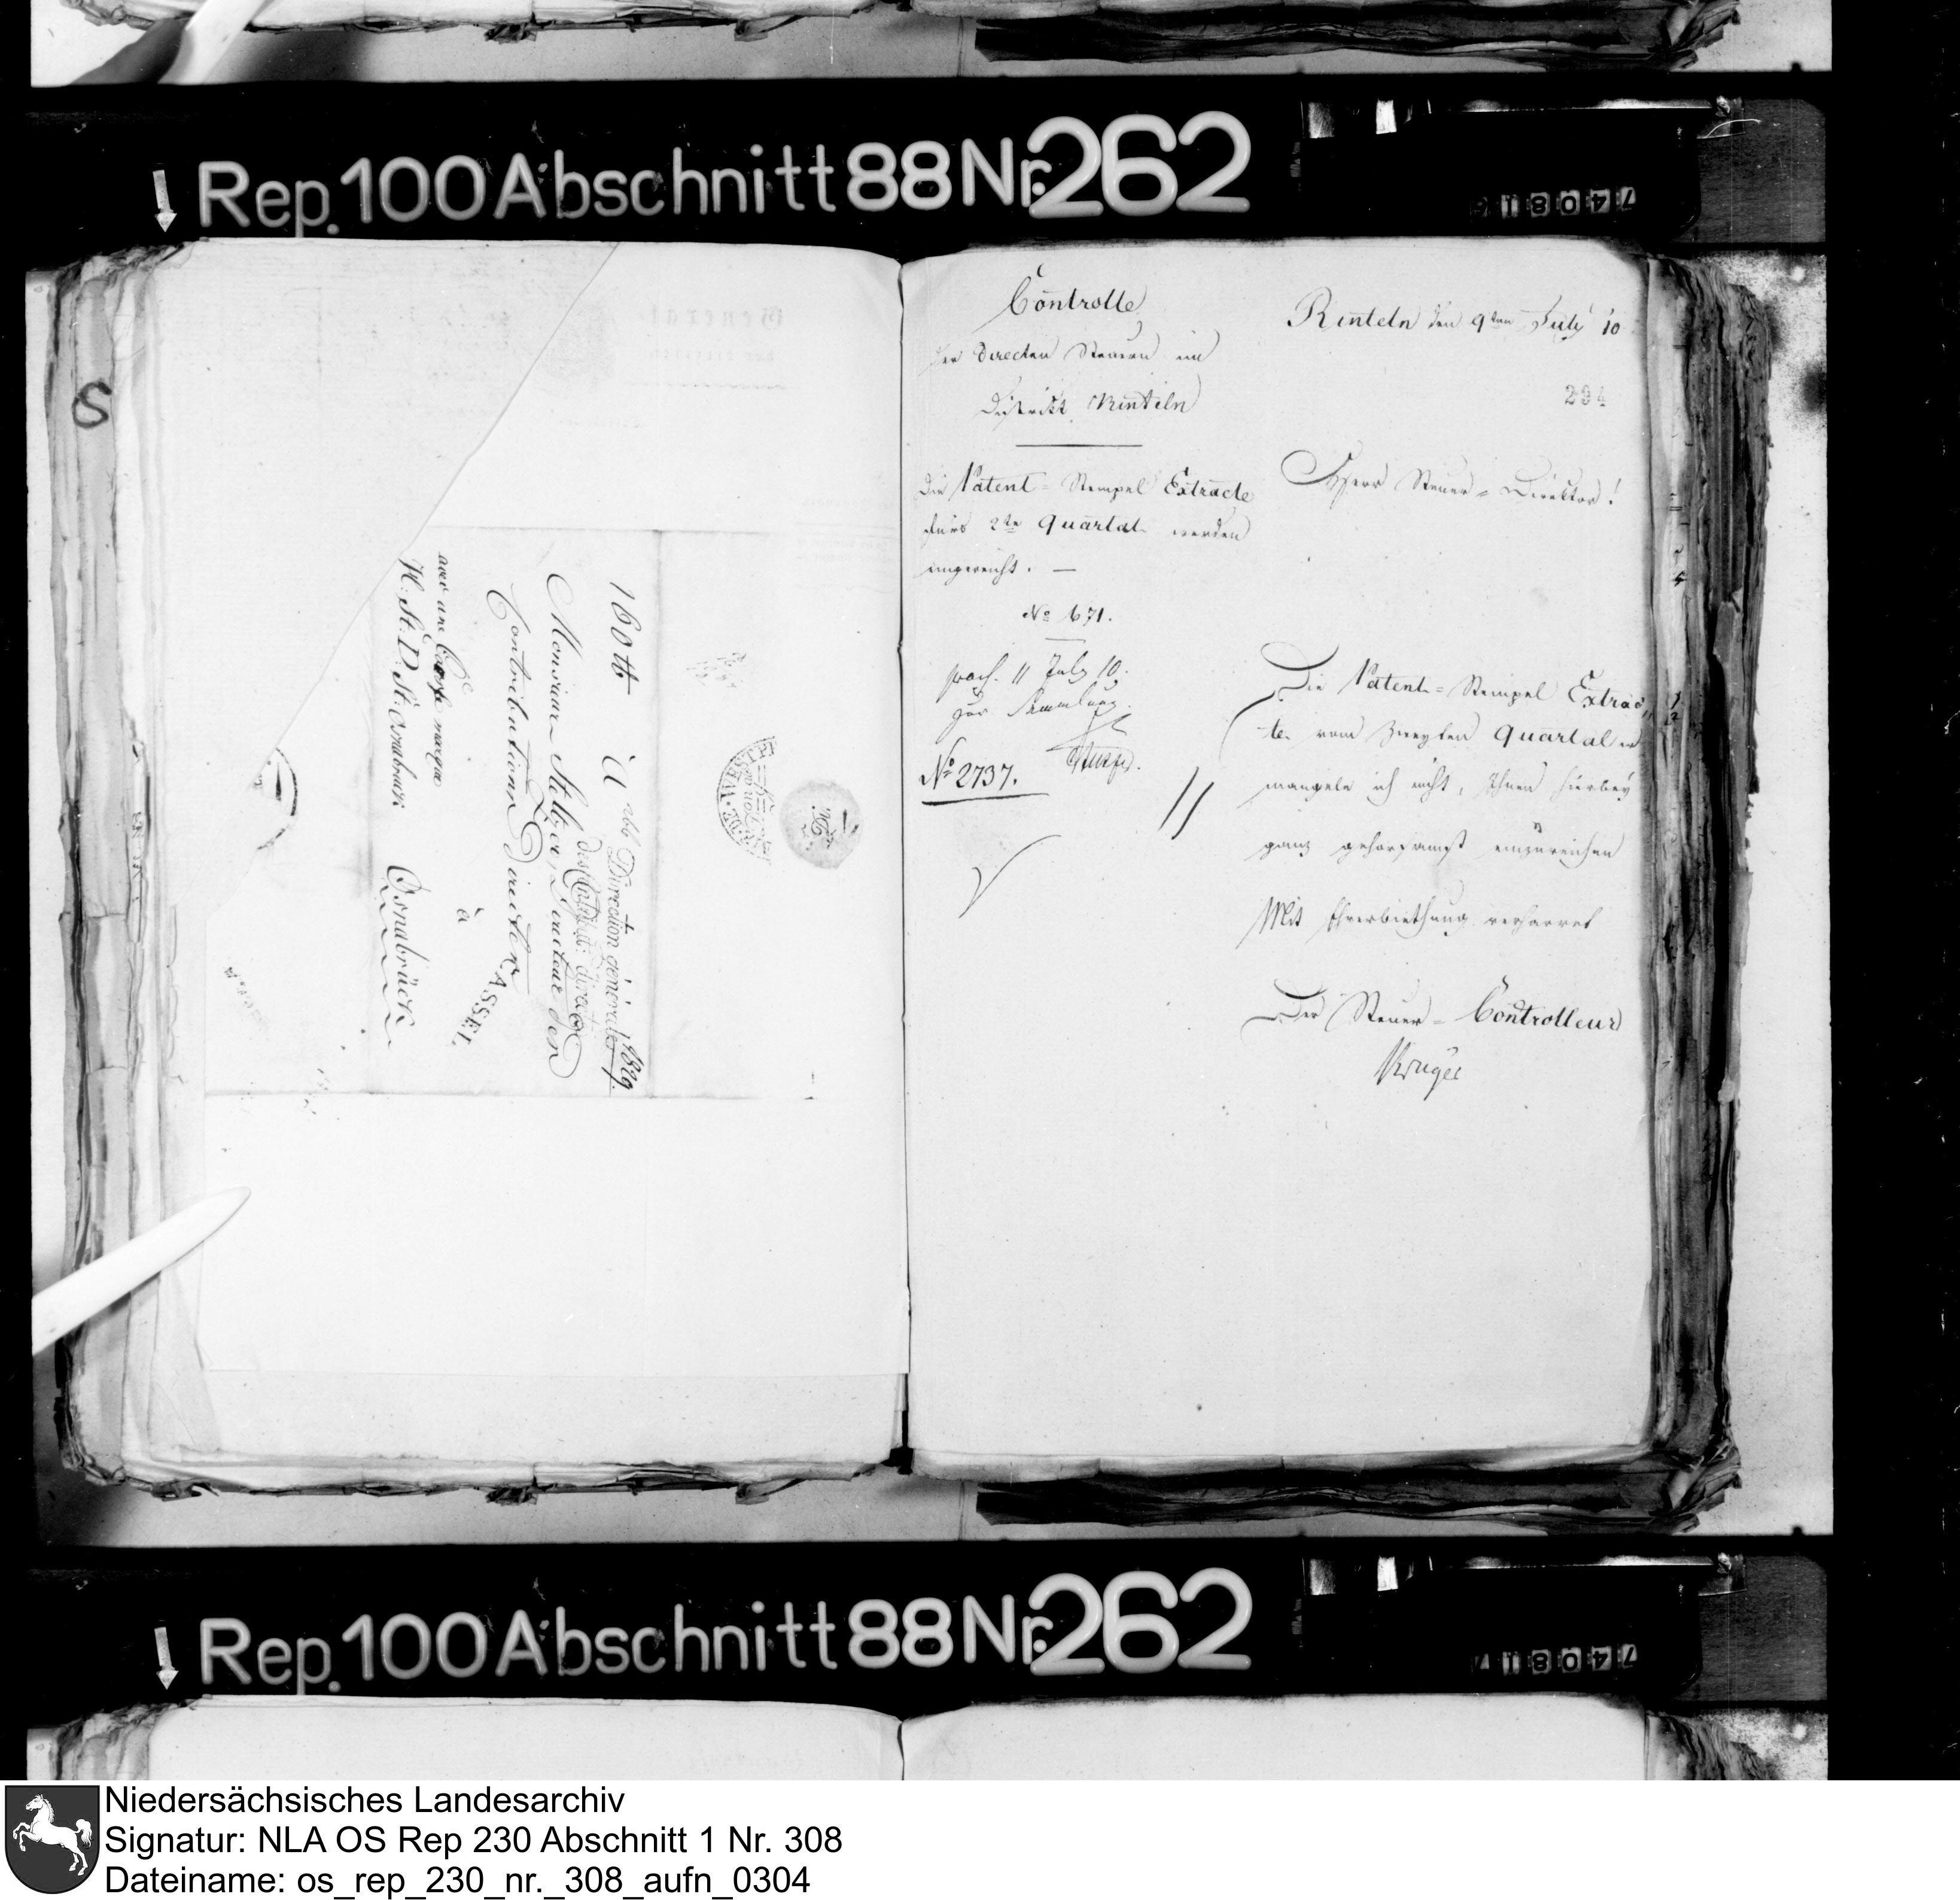 Rep. 100 Abschnitt 88 Nr. 262
74081
S
160 tt. A
266 Direction générale 1829.
des Contribut: directes
Monsieur Steltzer, Directeur den
Contributions Directen
CASSEL
à
avec une Caisse marqué
H. St. D. St. Osnabruck. Osnabrück
Controlle
der directen Steuern im
District Rinteln
Die Patent-Stempel Extracte
fürs 2te Quartal werden
eingereicht. —
No 671.
praes. 11 July 10.
zur Sammlung.
No 2737.
Rinteln den 9ten July 10
294
Herr Steuer-Direktor!
Die Patent-Stempel Extrac
te vom Zweyten Quartal er
mangele ich nicht, Ihnen hierbey
ganz gehorsamst einzureichen
Mit Ehrerbiethung verharret
Der Steuer-Controlleur
Krüger
Rep. 100 Abschnitt 88 Nr. 262
740817
Niedersächsisches Landesarchiv
Signatur: NLA OS Rep 230 Abschnitt 1 Nr. 308
Dateiname: os_rep_230_nr._308_aufn_0304